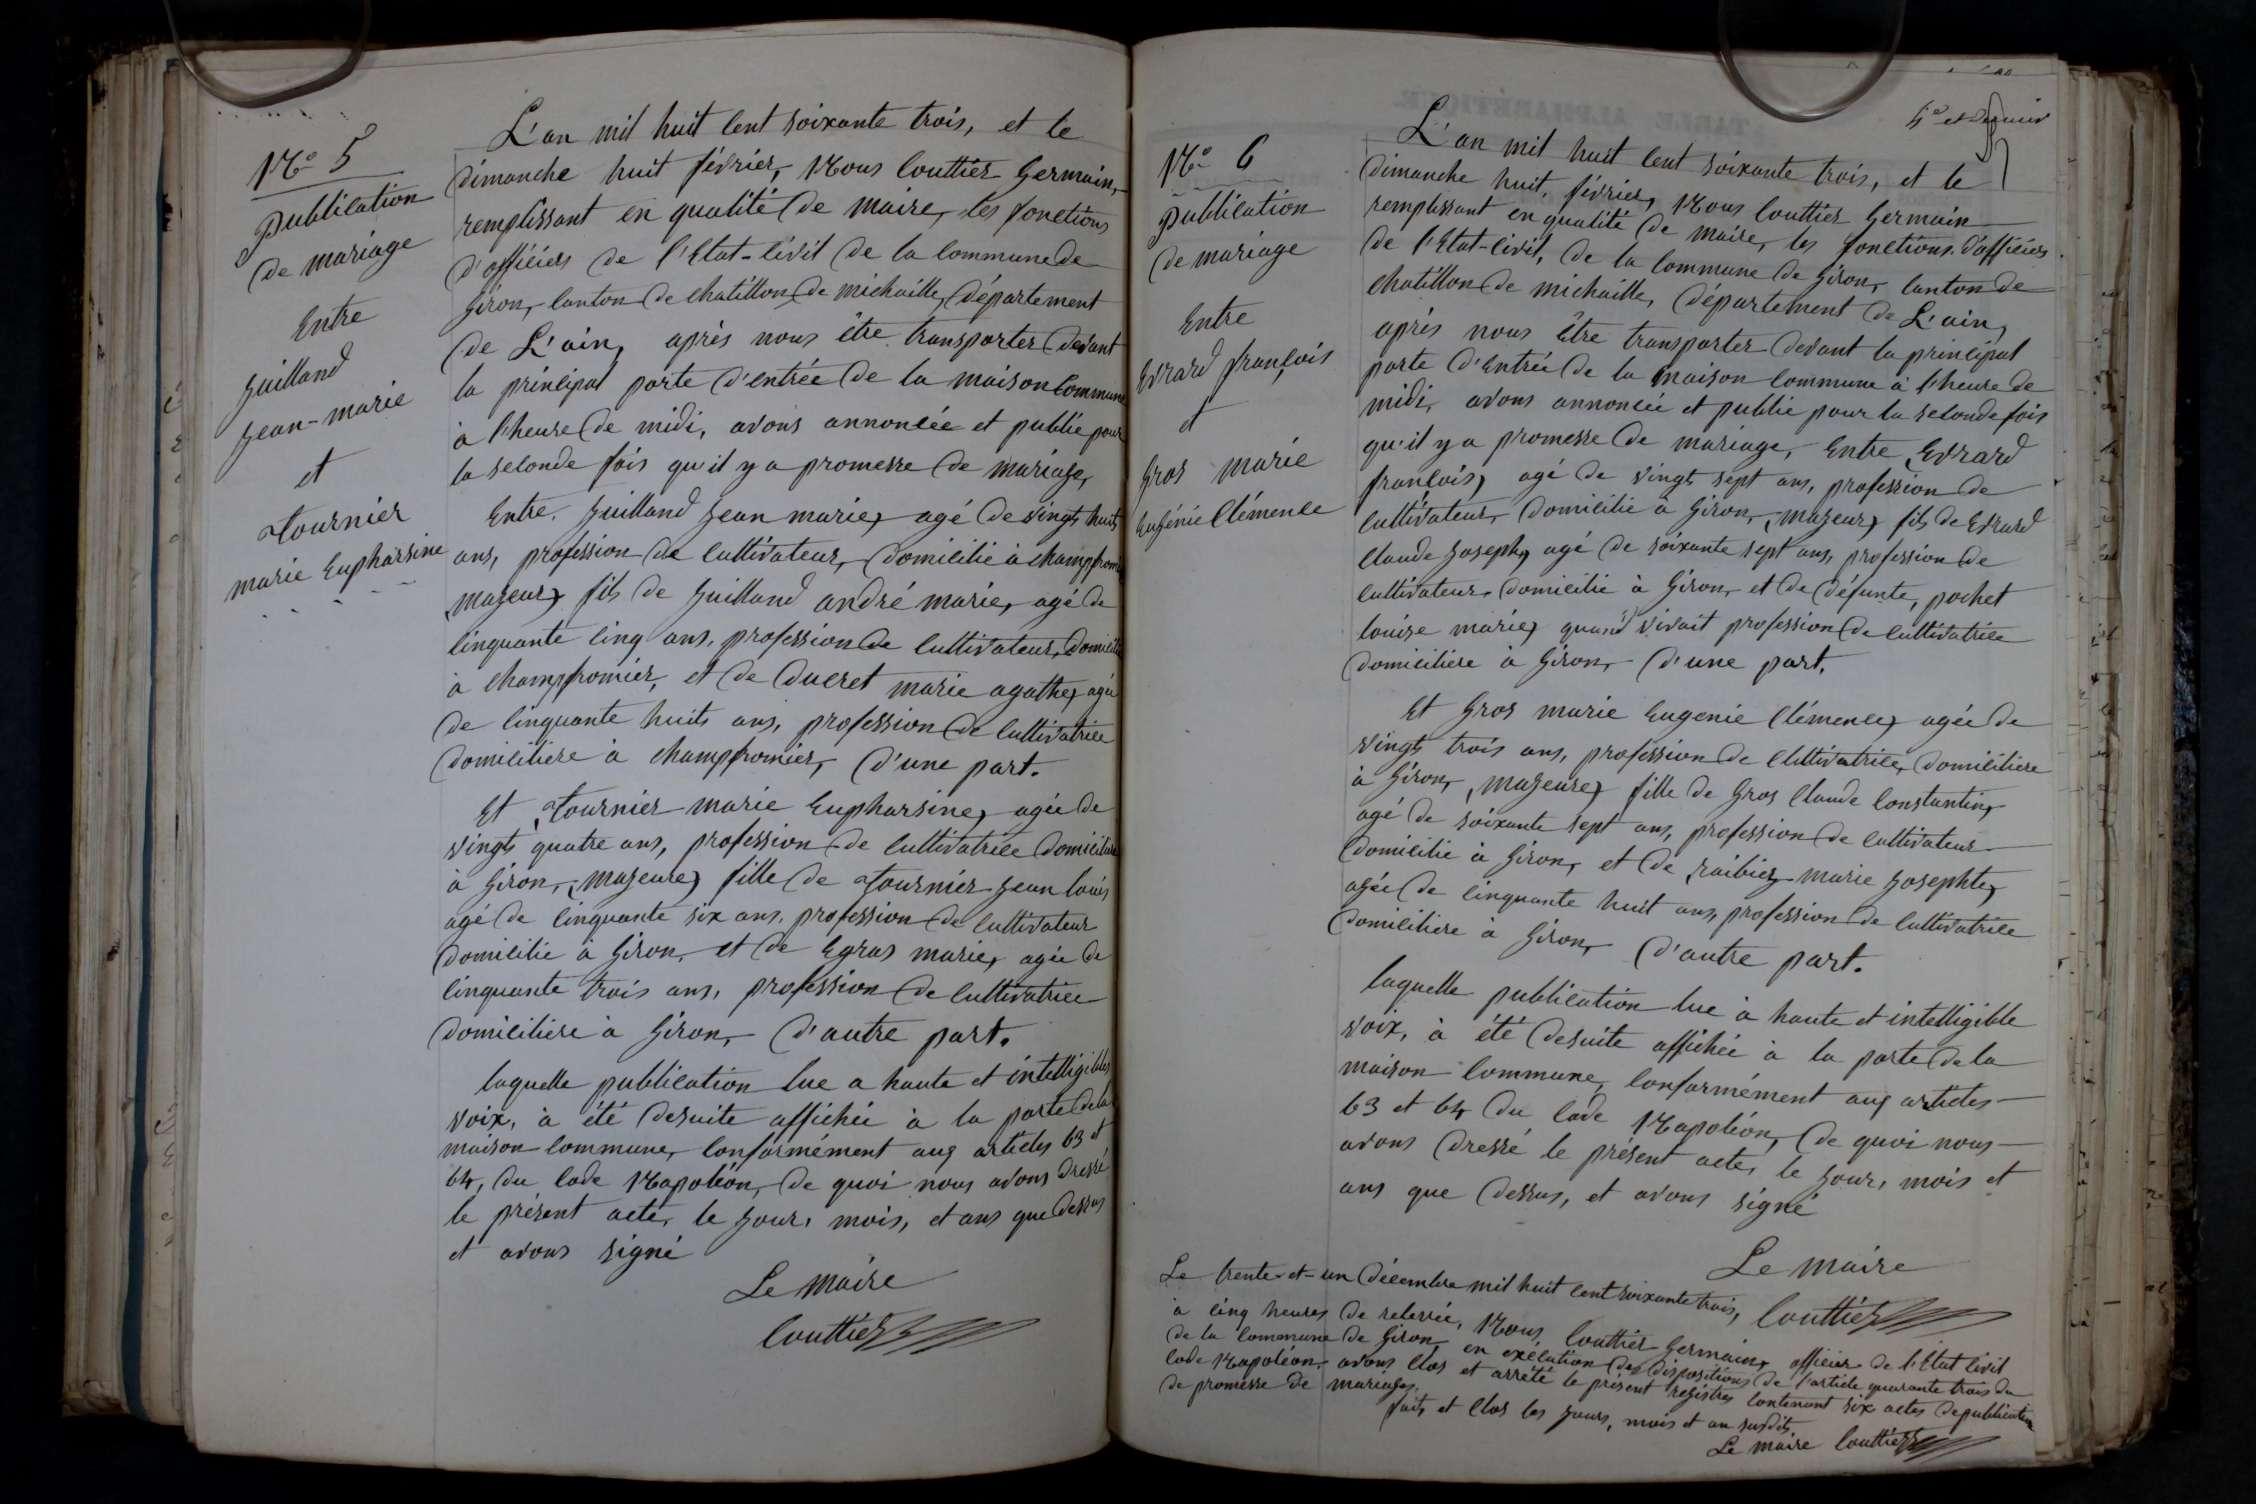 N.° 5
Publication
de mariage
Entre
Guilland
Jean-marie
et
Tournier
marie Eupharsine
L'an mil huit cent soixante trois, et le
dimanche huit février, Nous Couttier Germain,
remplissant en qualité de maire, les fonctions
d'officiers de l'Etat-civil de la commune de
Giron, canton de chatillon de michaille, département
de L'ain, après nous être transporter devant
la principal porte d'entrée de la maison Commune
à l'heure de midi, avons annoncée et publié pour
la seconde fois qu'il y a promesse de mariage,
Entre. Guilland Jean marie, agé de vingt huits
ans, profession de cultivateur, domicilié à champfromier
majeur, fils de Guilland andré marie, agé de
cinquante cinq ans, profession de cultivateur, domicilié
à champfromier, et de Ducret marie agathe, agée
de cinquante huits ans, profession de cultivatrice
domicilière à champfromier, d'une part.
Et Tournier marie Eupharsine, agée de
vingt quatre ans, profession de cultivatrice domicilière
à Giron, majeure, fille de Tournier Jean louis
agé de cinquante six ans, profession de cultivateur
domicilié à Giron, et de Egras marie, agée de
cinquante trois ans, profession de cultivatrice
domicilière à Giron, d'autre part.
laquelle publication lue a haute et intelligible
voix, à été desuite affichée à la porte de la
maison commune, conformément aux articles 63 et
64, du code Napoléon, de quoi nous avons dressé
le présent acte, le jour, mois, et ans que dessus
et avons signé
Le Maire
Couttier
5e et dernier
N.° 6
Publication
de mariage
Entre
Evrard françois
et
Gros marie
Eugénie Clémence
L'an mil huit cent soixante trois, et le
dimanche huit, février, Nous Couttier Germain
remplissant en qualité de maire, les fonctions d'officiers
de l'Etat-civil, de la commune de Giron, canton de
chatillon de michaille, département de L'ain,
après nous être transporter devant la principal
porte d'Entrée de la maison commune à l'heure de
midi, avons annoncée et publié pour la seconde fois
qu'il y a promesse de mariage, Entre Evrard
françois, agé de vingt sept ans, profession de
cultivateur, domicilié à Giron, majeur, fils de Evrard
Claude Joseph, agé de soixante sept ans, profession de
cultivateur domicilié à Giron, et de défunte, pochet
louise marie, quand vivait profession de cultivatrice
domicilière à Giron, d'une part,
Et Gros marie Eugenie Clémence, agée de
vingt trois ans, profession de Cultivatrice, domicilière
à Giron, majeure, fille de Gros Claude Constantin,
agé de soixante sept ans, profession de cultivateur
domicilié à Giron, et de raibiez marie Josephte,
agée de cinquante huit ans, profession de cultivatrice
domicilière à Giron, d'autre part.
laquelle publication lue à haute et intelligible
voix, à été desuite affichée à la porte de la
maison commune, conformément aux articles
63 et 64 du code Napoléon, de quoi nous
avons dressé le présent acte, le jour, mois et
ans que dessus, et avons signé
Le Maire
Couttier
Le trente-et-un décembre mil huit cent soixante trois,
à cinq heures de relevée, Nous Couttier Germain, officier de l'Etat civil
de la commune de Giron, en exécution des dispositions de l'article quarante trois du
code Napoléon, avons clos et arrêté le présent registres contenant six actes de publication
de promesse de mariages.
fait, et Clos les jours, mois et an susdits
Le maire Couttier